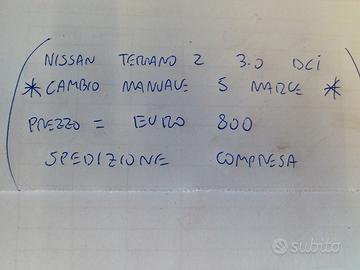 NISSAN TERRANO 2 3.0 DCI
* CAMBIO MANUALE 5 MARCE *
PREZZO = EURO 800
SPEDIZIONE COMPRESA
subito